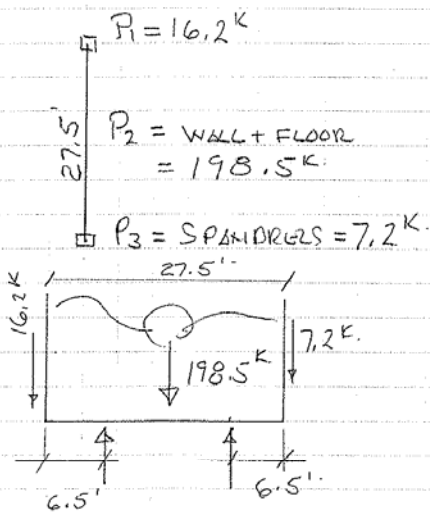 P1 = 16.2K
27.5'
P2 = WALL + FLOOR
= 198.5K.
P3 = SPANDRELS = 7.2K.
27.5'
16.2K
7.2K.
198.5K
6.5'
6.5'